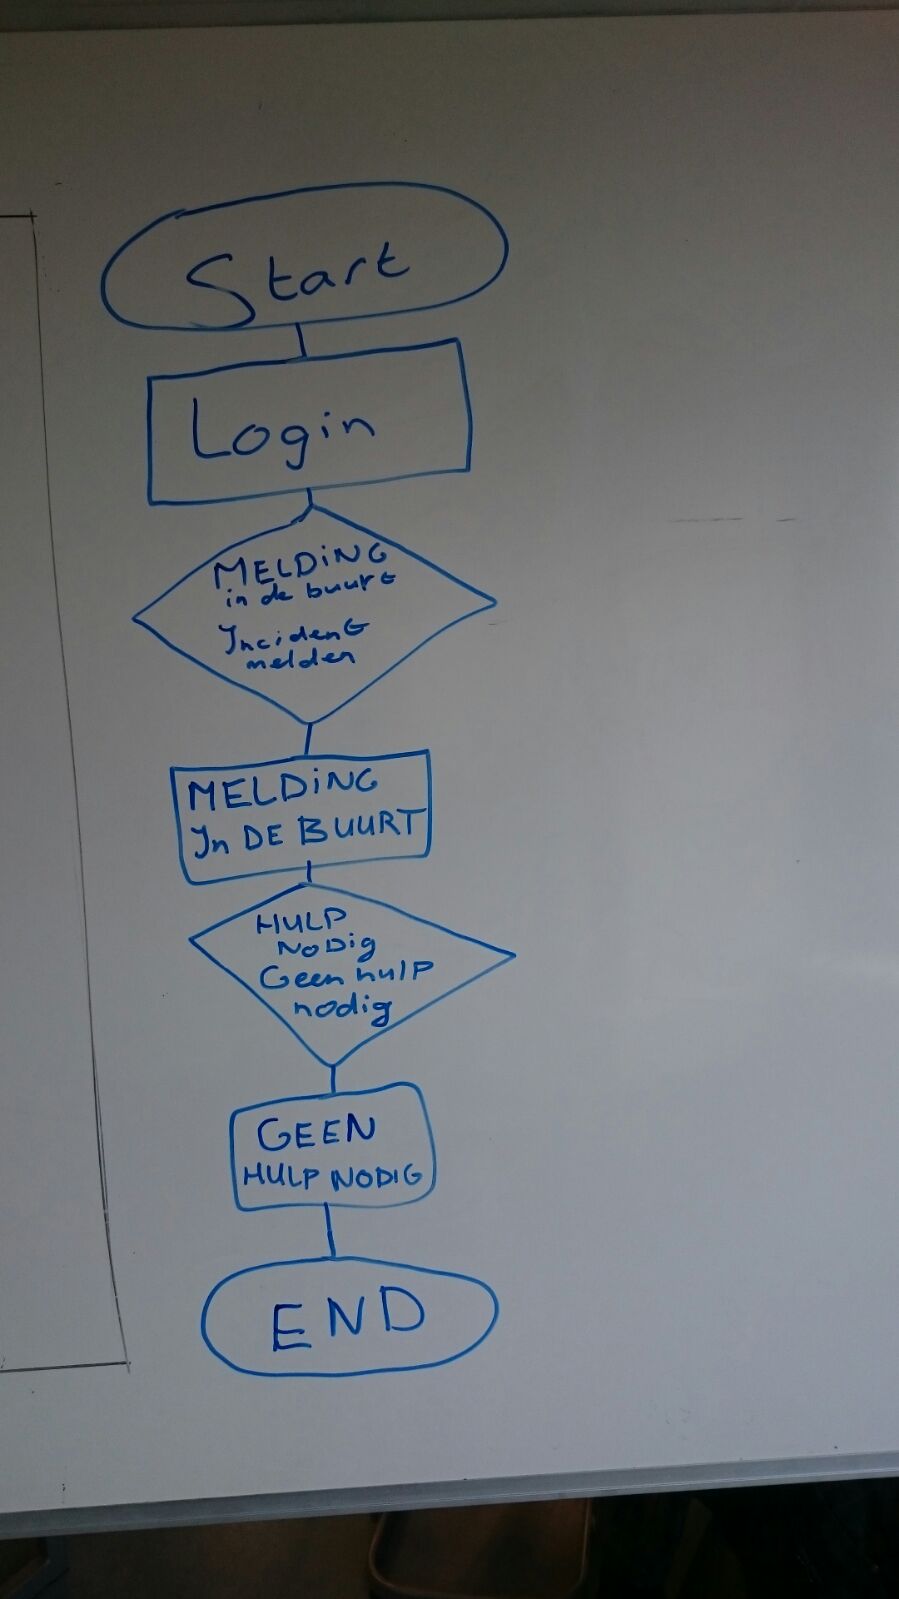 Start
Login
MELDiNG
in de buurt
Incident
melden
MELDiNG
In DE BUURT
HULP
NODig
Geen hulp
nodig
GEEN
HULP NODIG
END